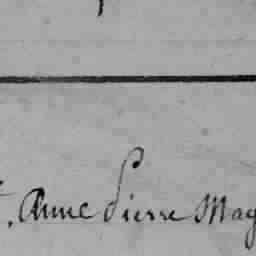 Anne Pierre Mag